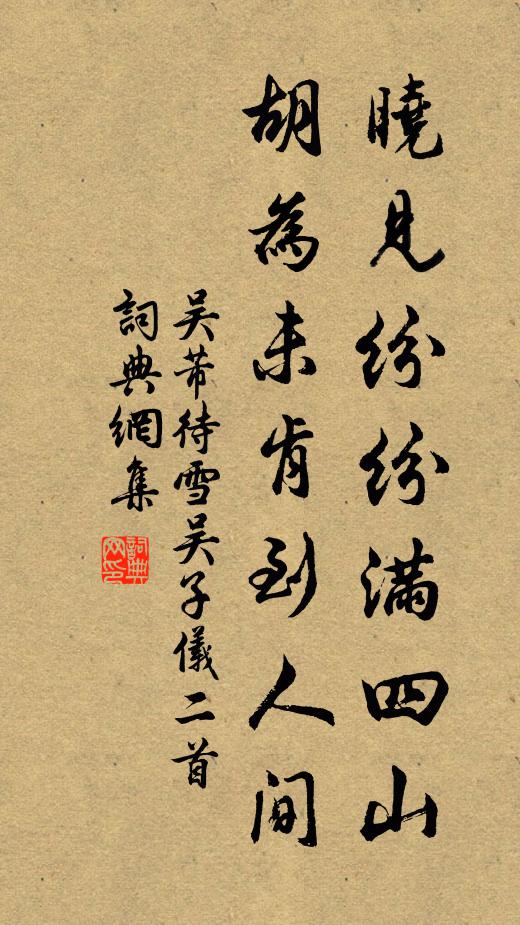 曉見紛紛滿四山
胡為未肯到人間
吴芾待雪吴子儀二首
詞典網集
詞典
网印